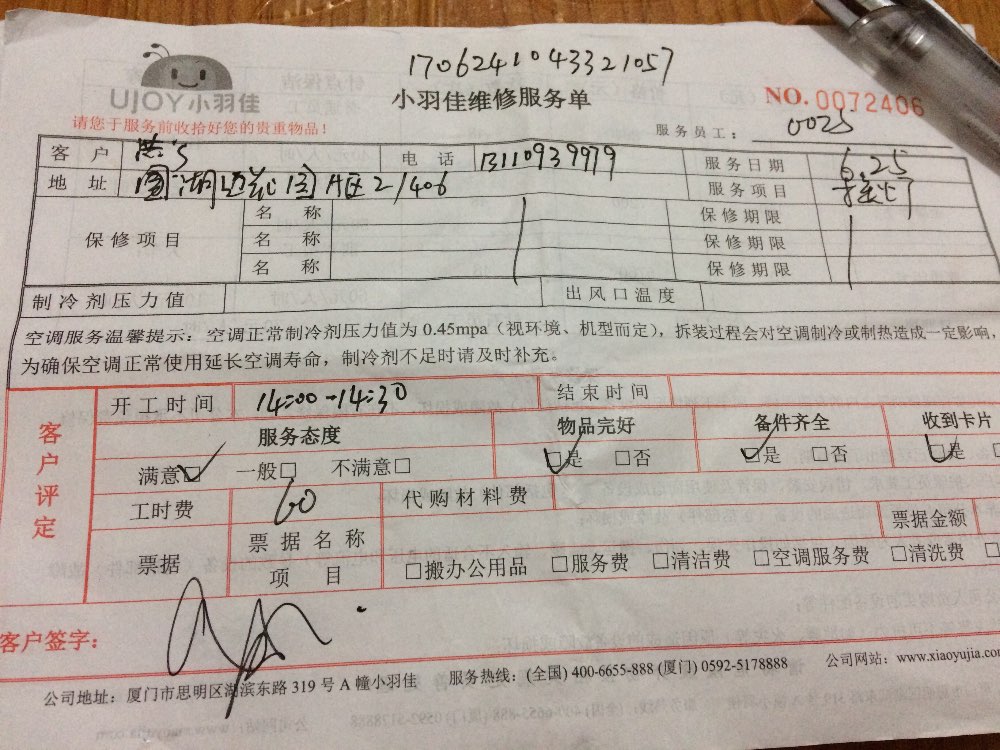 1706241043321057
UJOY小羽佳
小羽佳维修服务单
NO. 0072406
请您于服务前收拾好您的贵重物品！
服务员工： 0025
客 户 电 话 13110939979 服务日期 6.25
地 址 湖边花园A区21406 服务项目
保修项目 名 称 保修期限
名 称 保修期限
名 称 保修期限
制冷剂压力值 出风口温度
空调服务温馨提示：空调正常制冷剂压力值为 0.45mpa（视环境、机型而定），拆装过程会对空调制冷或制热造成一定影响，
为确保空调正常使用延长空调寿命，制冷剂不足时请及时补充。
客户评定
开工时间 14:00-14:30 结束时间
服务态度 物品完好 备件齐全 收到卡片
满意☑ 一般□ 不满意□ ☑是 □否 ☑是 □否 ☑是
工时费 60 代购材料费
票据 票据名称 票据金额
项 目 □搬办公用品 □服务费 □清洁费 □空调服务费 □清洗费
客户签字：
公司地址：厦门市思明区湖滨东路 319 号 A 幢小羽佳 服务热线：(全国) 400-6655-888 (厦门) 0592-5178888 公司网站：www.xiaoyujia.com